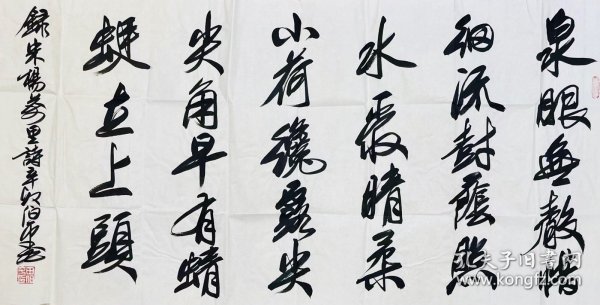 泉眼無聲惜
細流樹蔭照
水愛晴柔
小荷纔露尖
尖角早有蜻
蜓立上頭
錄宋楊萬里詩辛卯
孔夫子旧书网
www.kongfz.com